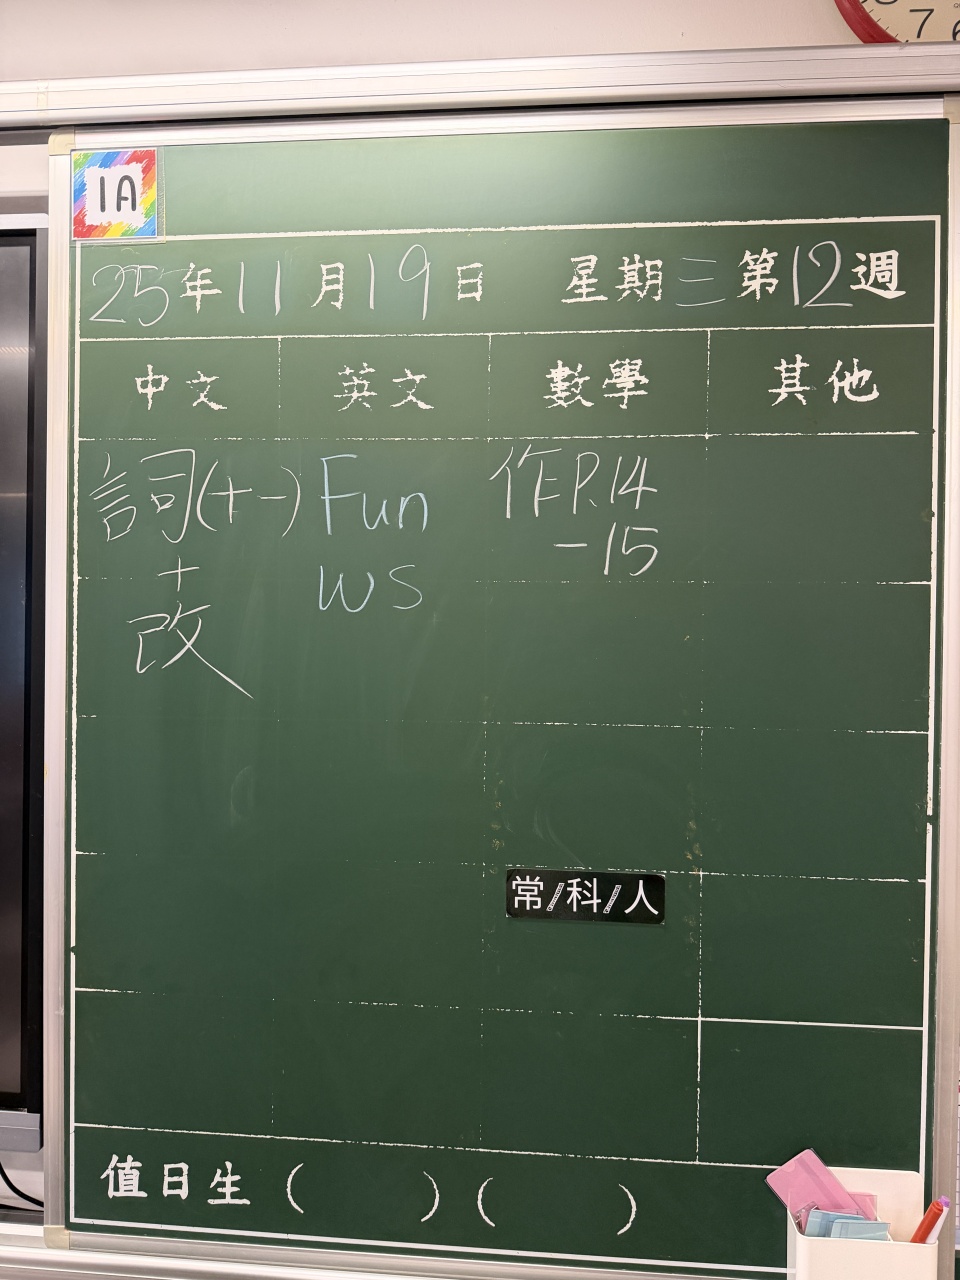 7
1A
25年11月19日 星期三第12週
中文 英文 數學 其他
詞(十一) Fun 作P.14
+ WS -15
改
常/科/人
值日生 ( ) ( )